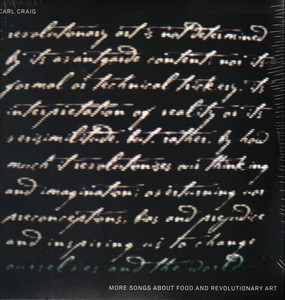 CARL CRAIG
revolutionary art is not determined
by its avantgarde content nor its
formal or technical trickery, its
interpretation of reality or its
verisimilitude, but, rather, by how
much it revolutionises our thinking
and imagination; overturning our
preconceptions, bias and prejudice
and inspiring us to change
ourselves and the world
MORE SONGS ABOUT FOOD AND REVOLUTIONARY ART